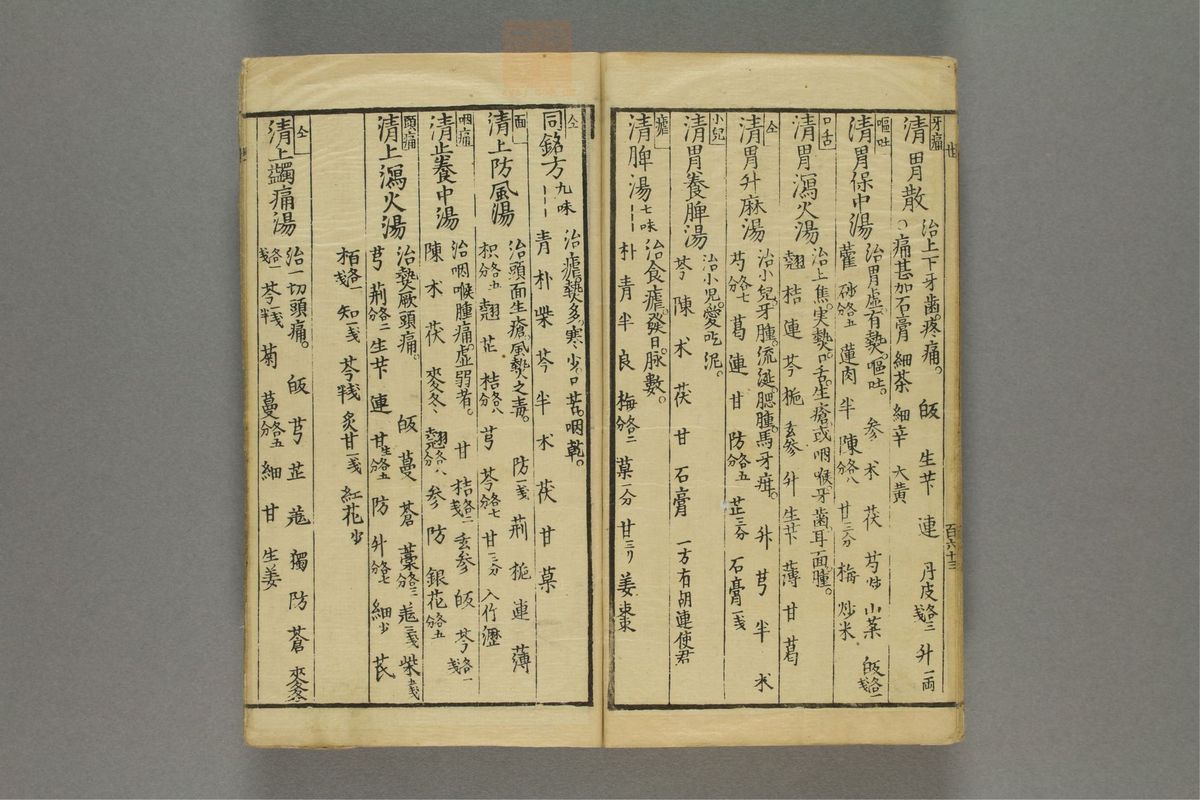 世
牙痛
清胃散
治上下牙齒疼痛。 皈 生芐 連 丹皮各三戔 升一両
○痛甚加石膏 細茶 細辛 大黄
嘔吐
清胃保中湯
治胃虚有㔟。嘔吐。 参 朮 茯 芍炒 山薬 皈各一戔
藿 砂各五分 蓮肉 半 陳各八分 甘三分 梅 炒米
口舌
清胃瀉火湯
治上焦。実㔟。口舌生瘡。或咽喉。牙齒。耳面腫。
翹 桔 連 芩 梔 玄参 升 生芐 薄 甘 葛
仝
清胃升麻湯
治小兒。牙腫。流涎。腮腫。馬牙疳。 升 芎 半 朮
芍各七分 葛 連 甘 防各五分 芷三分 石膏一戔
小兒
清胃養脾湯
治小兒愛吃泥。
芩 陳 朮 茯 甘 石膏 一方有胡連使君
瘧
清脾湯 七味
治食瘧。發日。脉數。
朴 青 半 良 梅各二分 菓一分 甘三リ 姜 棗
百六十三
仝
同銘方 九味
治瘧㔟多。寒少。口苦。咽乾。
青 朴 柴 芩 半 朮 茯 甘 菓
面
清上防風湯
治頭面生瘡。風㔟之毒。 防一戔 荆 梔 連 薄
枳各五分 翹 芷 桔各八分 芎 芩各七分 甘三分 入竹瀝
咽痛
清上養中湯
治咽喉腫痛。虚弱者。 甘 桔各二戔 玄参 皈 芩各一戔
陳 朮 茯 麥冬 翹各八分 参 防 銀花各五分
頭痛
清上瀉火湯
治㔟厥頭痛。 皈 蔓 蒼 藁各三分 羗三戔 柴戔
芎 荆各二分 生芐 連 甘生各五分 防 升各七分 細少 芪
栢各一戔 知一戔 芩戔半 炙甘一戔 紅花少
仝
清上蠲痛湯
治一切頭痛。 皈 芎 芷 羗 獨 防 蒼 麥各一戔
芩一戔半 菊 蔓各五分 細 甘 生姜